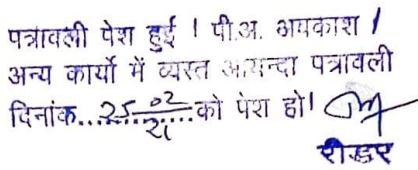 पत्रावली पेश हुई । पी.अ. अवकाश /
अन्य कार्यो में व्यस्त आयन्दा पत्रावली
दिनांक....25 02/21....को पेश हो।
रीडर